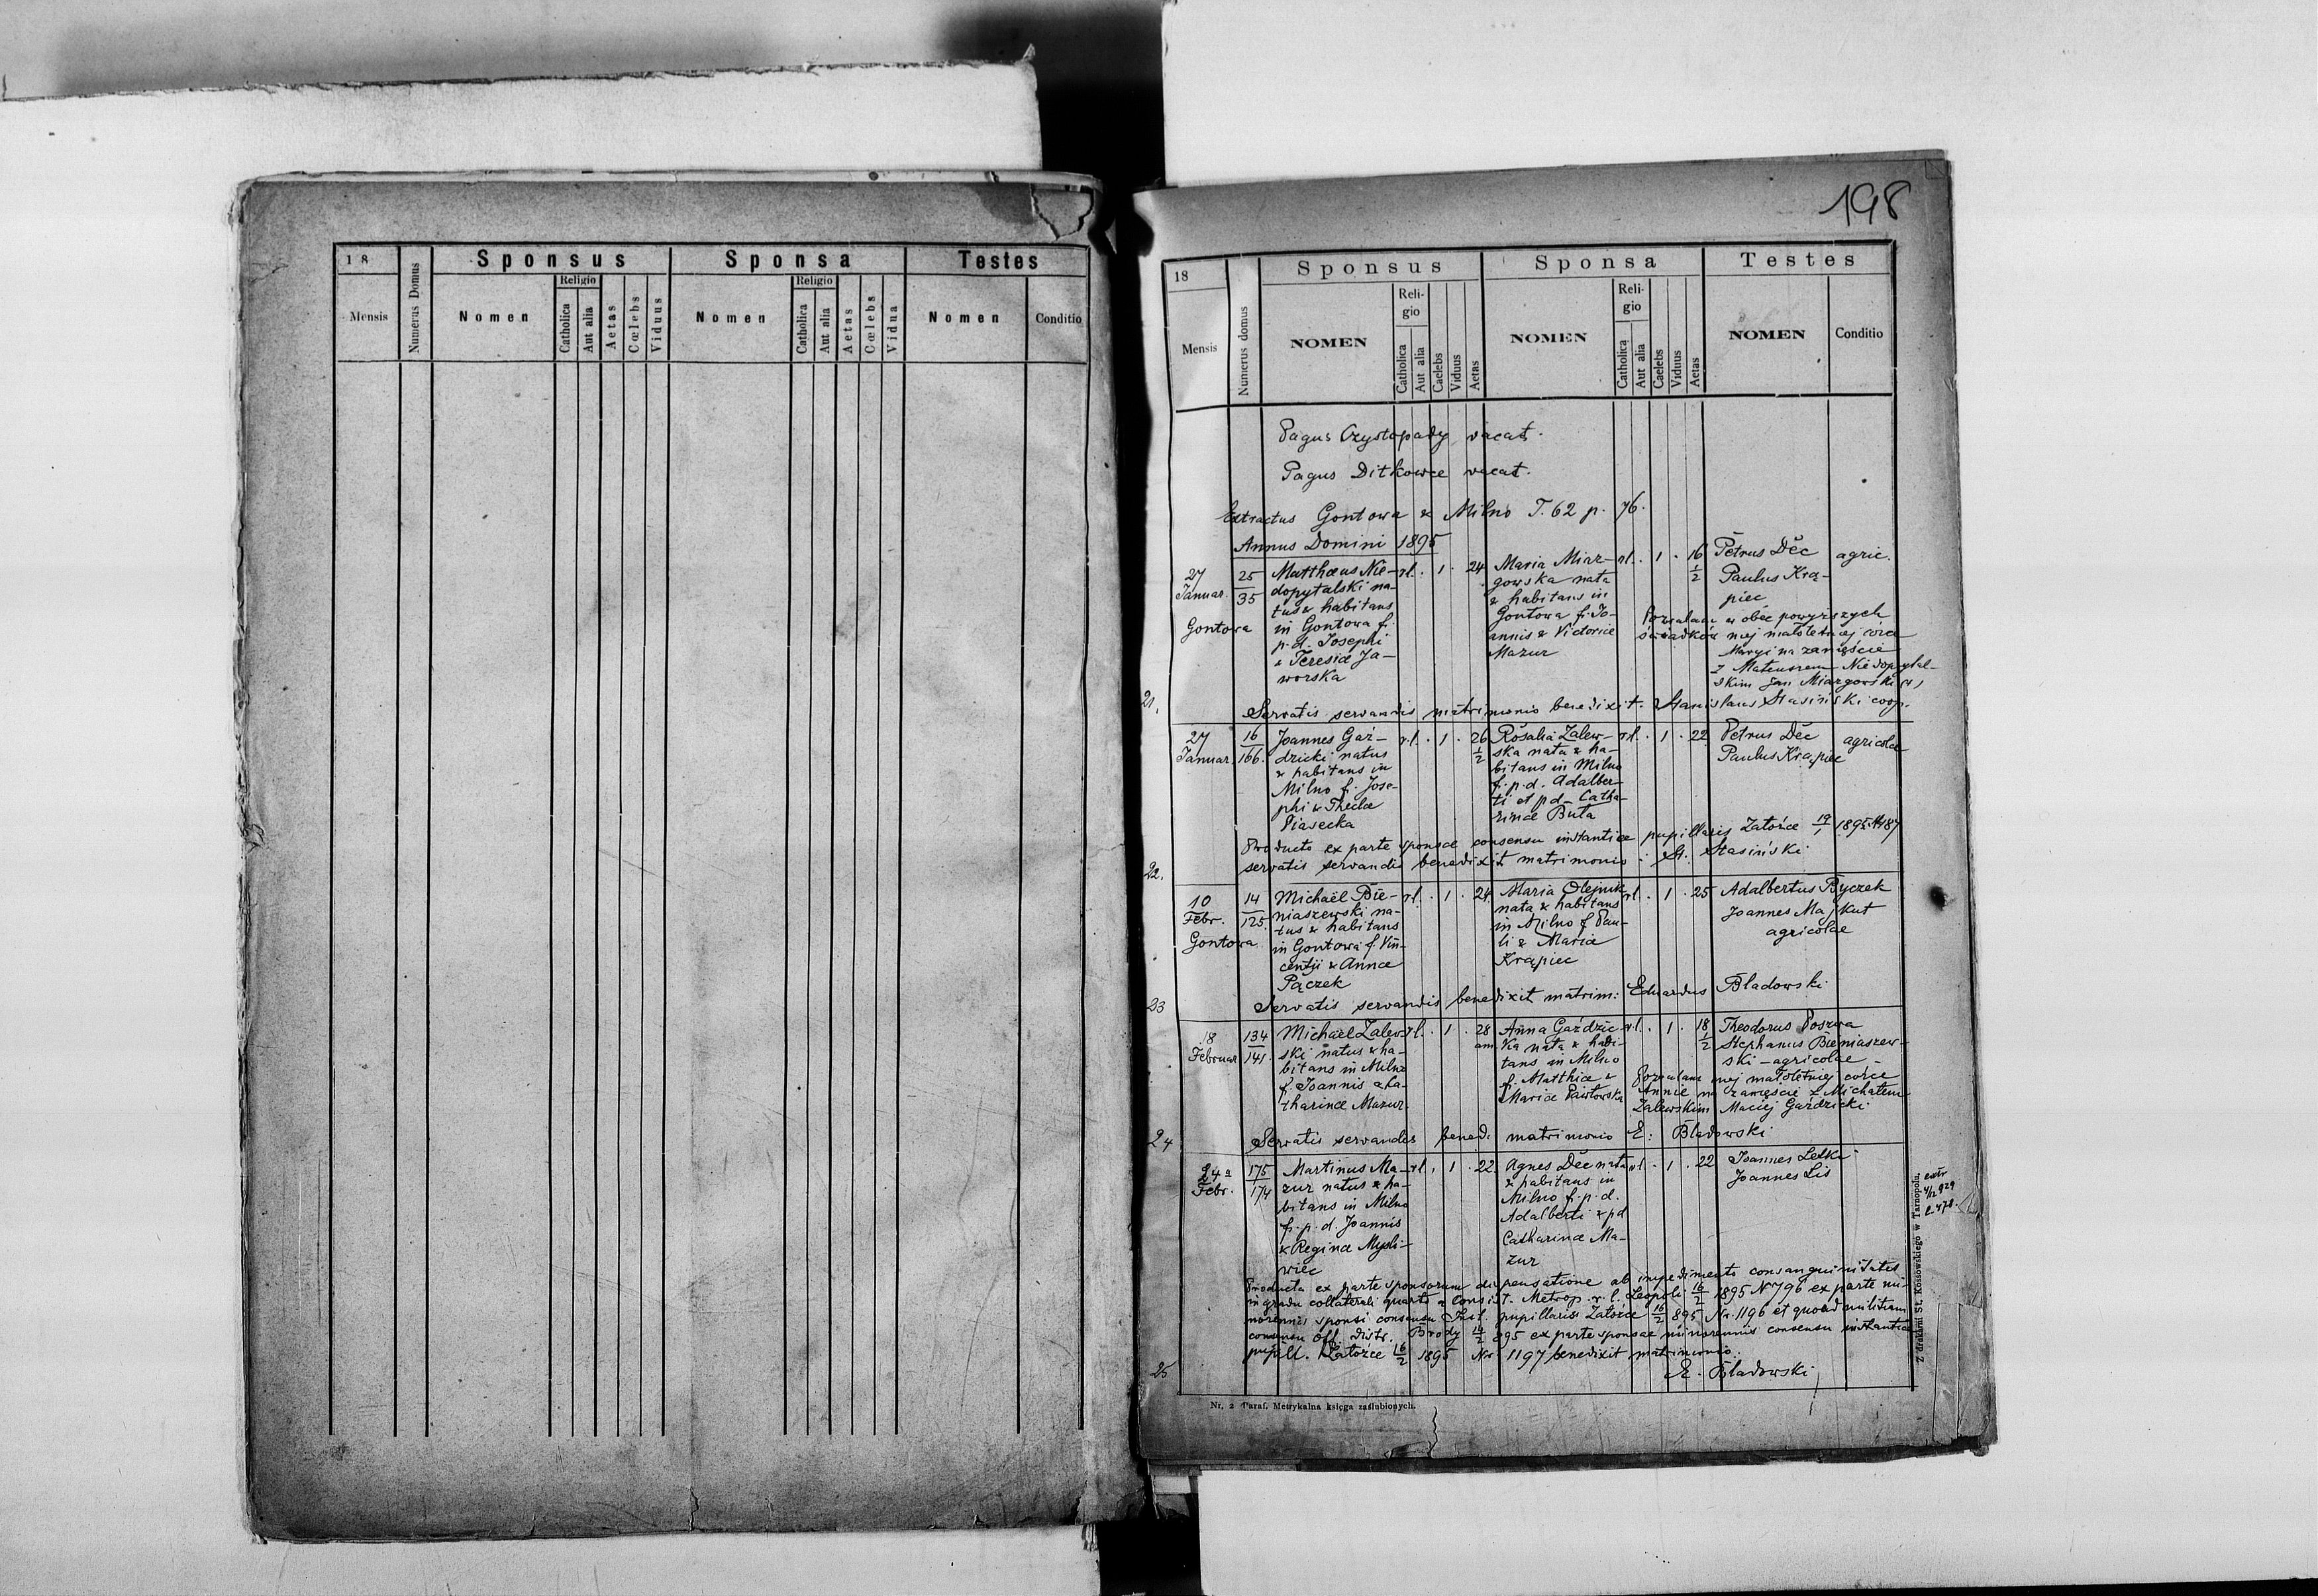 18
Numerus Domus
Sponsus
Sponsa
Testes
Mensis
Nomen
Religio
Catholica
Aut alia
Aetas
Cœlebs
Viduus
Nomen
Religio
Catholica
Aut alia
Aetas
Cœlebs
Vidua
Nomen
Conditio
198
18
Numerus domus
Sponsus
Sponsa
Testes
Mensis
NOMEN
Reli-
gio
Catholica
Aut alia
Caelebs
Viduus
Aetas
NOMEN
Reli-
gio
Catholica
Aut alia
Caelebs
Viduus
Aetas
NOMEN
Conditio
Pagus Czystopady vacat.
Pagus Ditkowce vacat.
Extractus Gontowa & Milno T. 62 p. 76.
Annus Domini 1895
27
Januar.
Gontowa
25
35
Matthæus Nie-
dopytalski na-
tus & habitans
in Gontowa f.
p. d. Josephi
& Teresiæ Ja-
worska
rl. 1 . 24
Maria Miaz-
gowska nata
& habitans in
Gontowa f. Jo-
annis & Victoriæ
Mazur
rl. . 1 . 16 1/2
Petrus Dĕc
Paulus Krą-
piec
agric.
Pozwalam w obec powyższych
świadków mej małoletniej córce
Maryi na zamęście
z Mateuszem Niedopytal-
skim Jan Miazgowski
21.
Servatis servandis matrimonio benedixit. Stanislaus Stasiński coop.
27
Januar.
16
166.
Joannes Gaź-
dzicki natus
& habitans in
Milno f. Jose-
phi & Theclæ
Piasecka
rl. . 1 . 26 1/2
Rosalia Zalew-
ska nata & ha-
bitans in Milno
f. p. d. Adalber-
ti et pd. Catha-
rinæ Buta
rl. . 1 . 22
Petrus Dĕc
Paulus Krąpiec
agricolæ
Producto ex parte sponsæ consensu instantiæ pupillaris Załoźce 19/1 1895 N 187
servatis servandis benedixit matrimonio : St. Stasiński
22.
10
Febr.
Gontowa
14
125.
Michaël Bie-
niaszewski na-
tus & habitans
in Gontowa f. Vin-
centii & Annæ
Pączek
rl. . 1 . 24
Maria Olejnik
nata & habitans
in Milno f. Pau-
li & Maria
Krąpiec
rl. 1 . 25
Adalbertus Byczek
Joannes Majkut
agricolae
23
Servatis servandis benedixit matrim: Eduardus Bladowski
18
Februar
134
141.
Michaël Zalew-
ski natus & ha-
bitans in Milno
f. Joannis & Ca-
tharinæ Mazur
rl. . 1 . 28
Anna Gaździc-
ka nata & habi-
tans in Milno
f. Matthiæ &
Mariæ Pawłowska
rl. . 1 . 18 1/2
Theodorus Poszwa
Stephanus Bieniaszew-
ski - agricolae -
Pozwalam mej małoletniej córce
Annie na zamęście z Michałem
Zalewskim Maciej Gaździcki
24
Servatis servandis bened. matrimonio E: Bladowski
24a
Febr.
175
174
Martinus Ma-
zur natus & ha-
bitans in Milno
f. p. d. Joannis
& Reginæ Myśli-
wiec
rl. . 1 . 22
Agnes Dĕc nata
& habitans in
Milno f. p. d.
Adalberti & pd
Catharinæ Ma-
zur
rl. . 1 . 22
Joannes Letki
Joannes Lis
Producta ex parte sponsorum dispensatione ab impedimento consanguinitatis
in gradu collaterali quarto a Consist. Metrop. r. l. Leopoli 16/2 1895 N 796 ex parte mi-
norennis sponsi consensu Inst. pupillaris Załoźce 16/2 895 Nr. 1196 et quoad militiam
consensu Off. Distr. Brody 14/2 895 ex parte sponsae minorennis consensu instantiæ
pupill. Załoźce 16/2 1895 Nr 1197 benedixit matrimonio.
25
E. Bladowski
Nr. 2 Paraf. Metrykalna księga zaślubionych.
Z drukarni St. Kossowskiego w Tarnopolu.